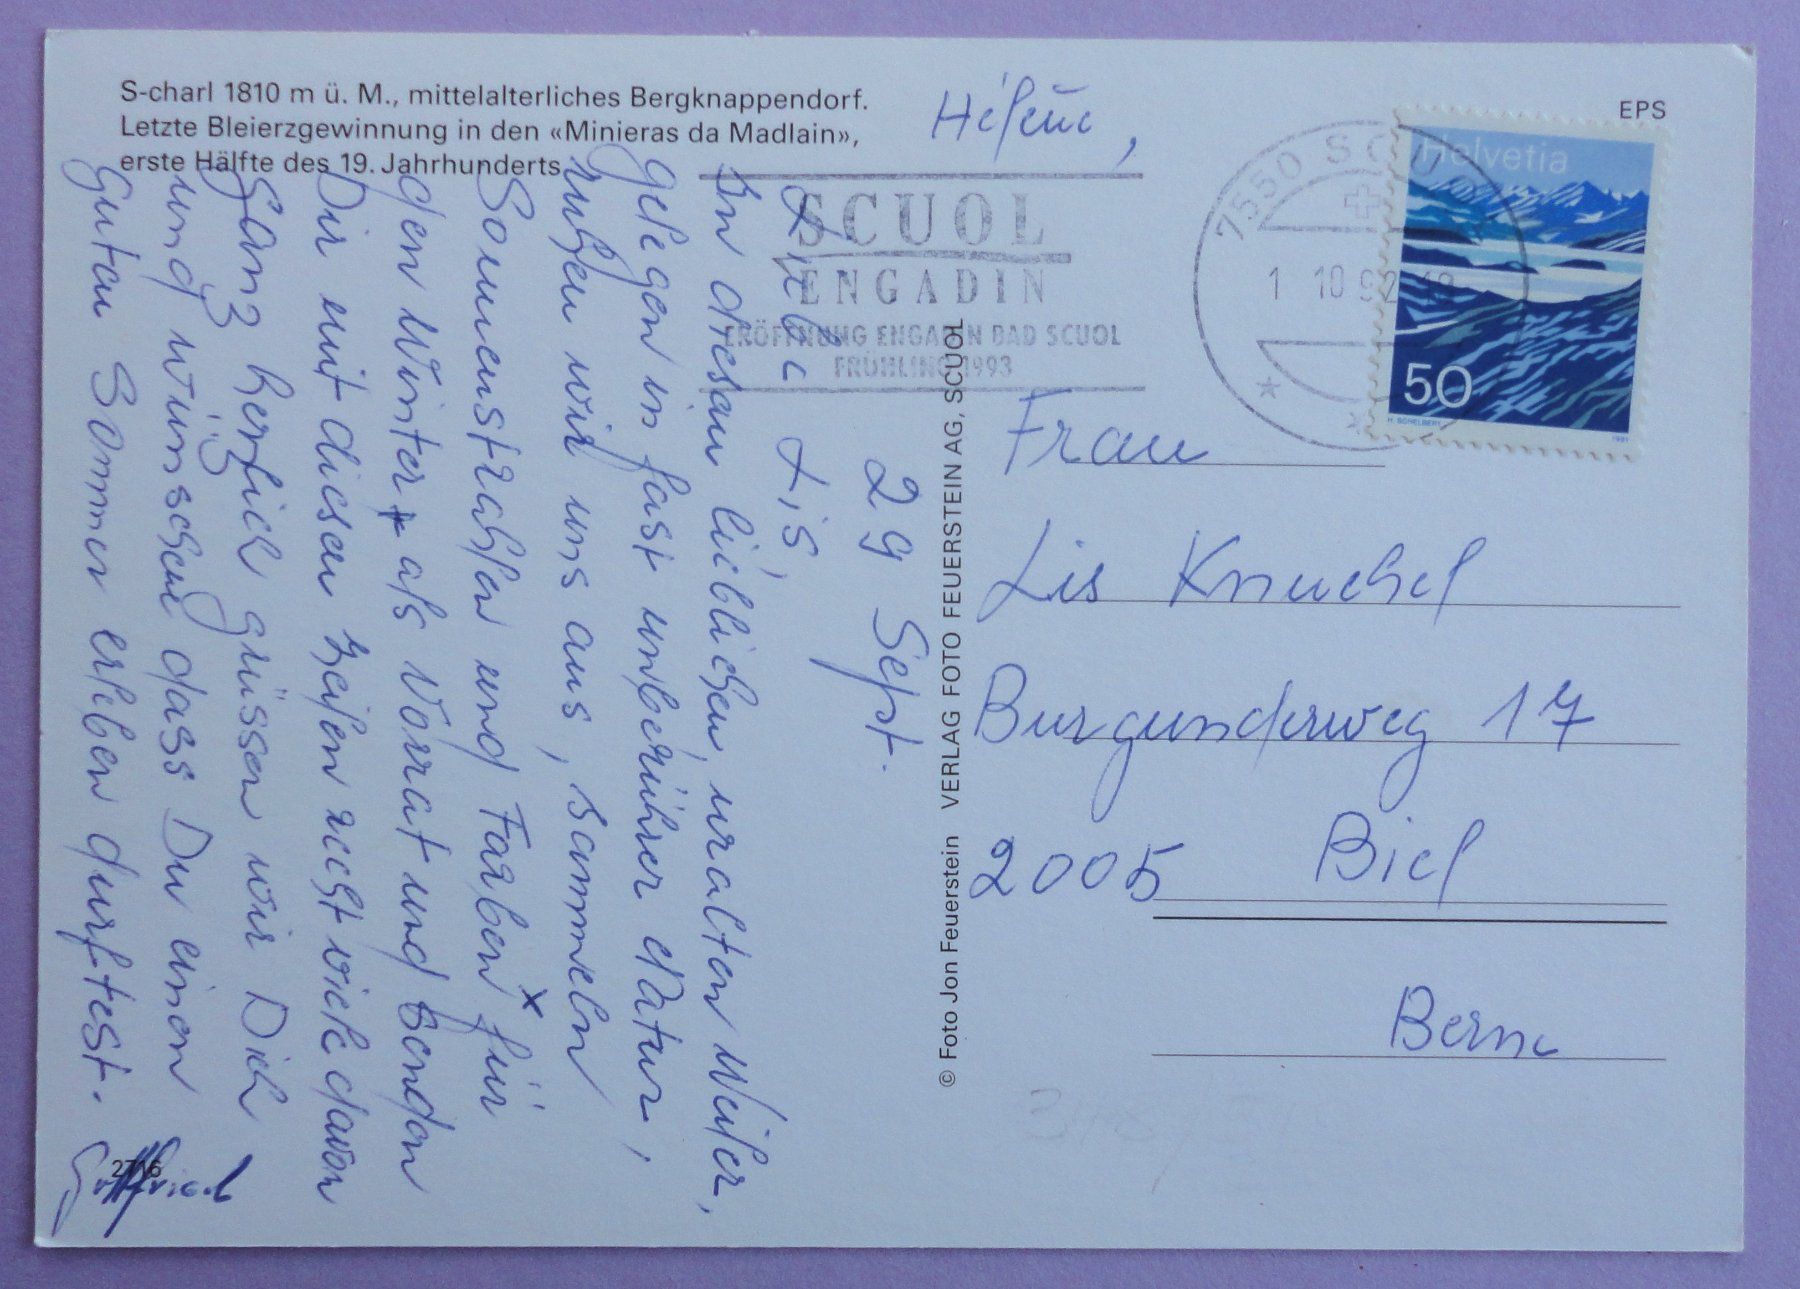 S-charl 1810 m ü. M., mittelalterliches Bergknappendorf.
Letzte Bleierzgewinnung in den «Minieras da Madlain»,
erste Hälfte des 19. Jahrhunderts.
EPS
Helvetia
50
H. SCHELBERT
1991
7550 SCUOL
1 10 92
SCUOL
ENGADIN
ERÖFFNUNG ENGADIN BAD SCUOL
FRÜHLING 1993
29 Sept.
Liebe Lis,
In diesem lieblichen, uralten Weiler,
gelegen in fast unberührer Natur,
ruhen wir uns aus, sammeln
Sonnenstrahlen und Farben x für
den Winter als Vorrat und senden
Dir mit diesen Zeilen recht viele davon
Ganz herzlich grüssen wir Dich
und wünschen dass Du einen
guten Sommer erleben durftest.
Gottfried
Helene,
2716
© Foto Jon Feuerstein VERLAG FOTO FEUERSTEIN AG, SCUOL
Frau
Lis Knuchel
Burgunderweg 17
2005 Biel
Bern